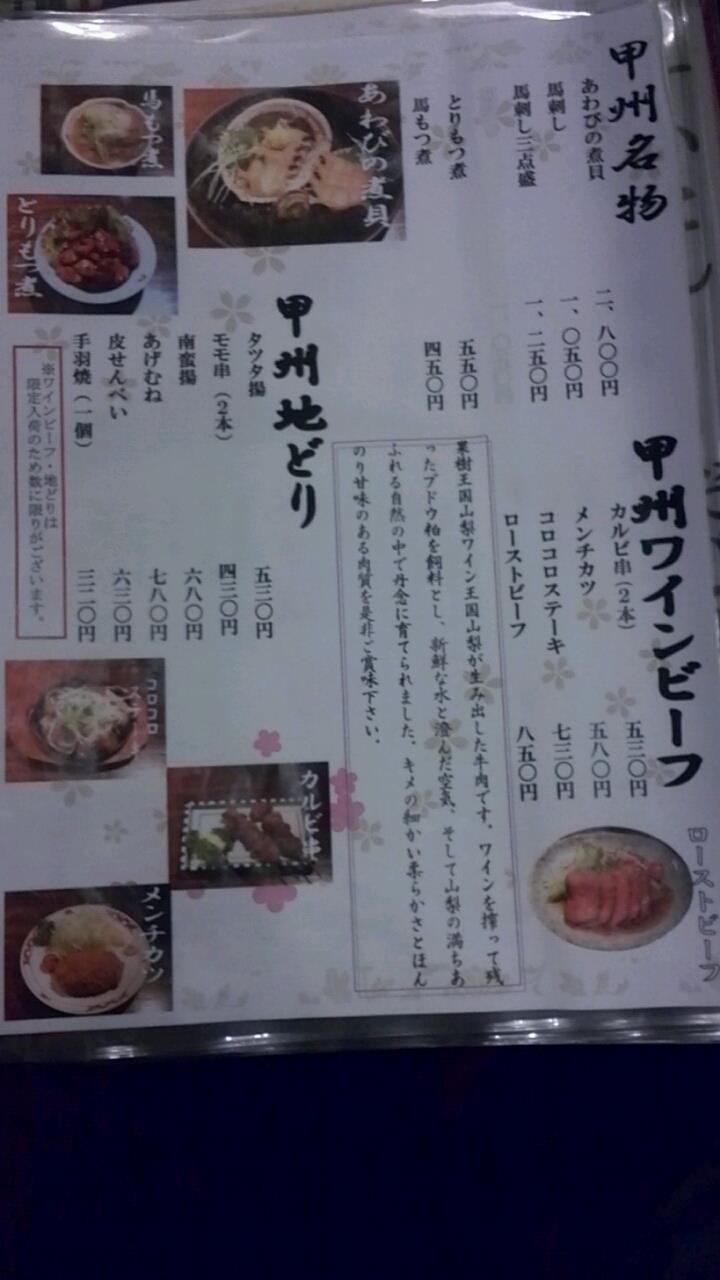 甲州名物
あわびの煮貝 二、八〇〇円
馬刺し 一、〇五〇円
馬刺し三点盛 一、二五〇円
とりもつ煮 五五〇円
馬もつ煮 四五〇円
あわびの煮貝
馬もつ煮
とりもつ煮
甲州ワインビーフ
カルビ串(2本) 五三〇円
メンチカツ 五八〇円
コロコロステーキ 七三〇円
ローストビーフ 八五〇円
果樹王国山梨ワイン王国山梨が生み出した牛肉です。ワインを搾って残
ったブドウ粕を飼料とし、新鮮な水と澄んだ空気、そして山梨の満ちあ
ふれる自然の中で丹念に育てられました。キメの細かい柔らかさとほん
のり甘味のある肉質を是非ご賞味下さい。
甲州地どり
タツタ揚 五三〇円
モモ串(2本) 四三〇円
南蛮揚 六八〇円
あげむね 七八〇円
皮せんべい 六三〇円
手羽焼(一個) 三二〇円
※ワインビーフ・地どりは
限定入荷のため数に限りがございます。
ローストビーフ
カルビ串
コロコロ
メンチカツ